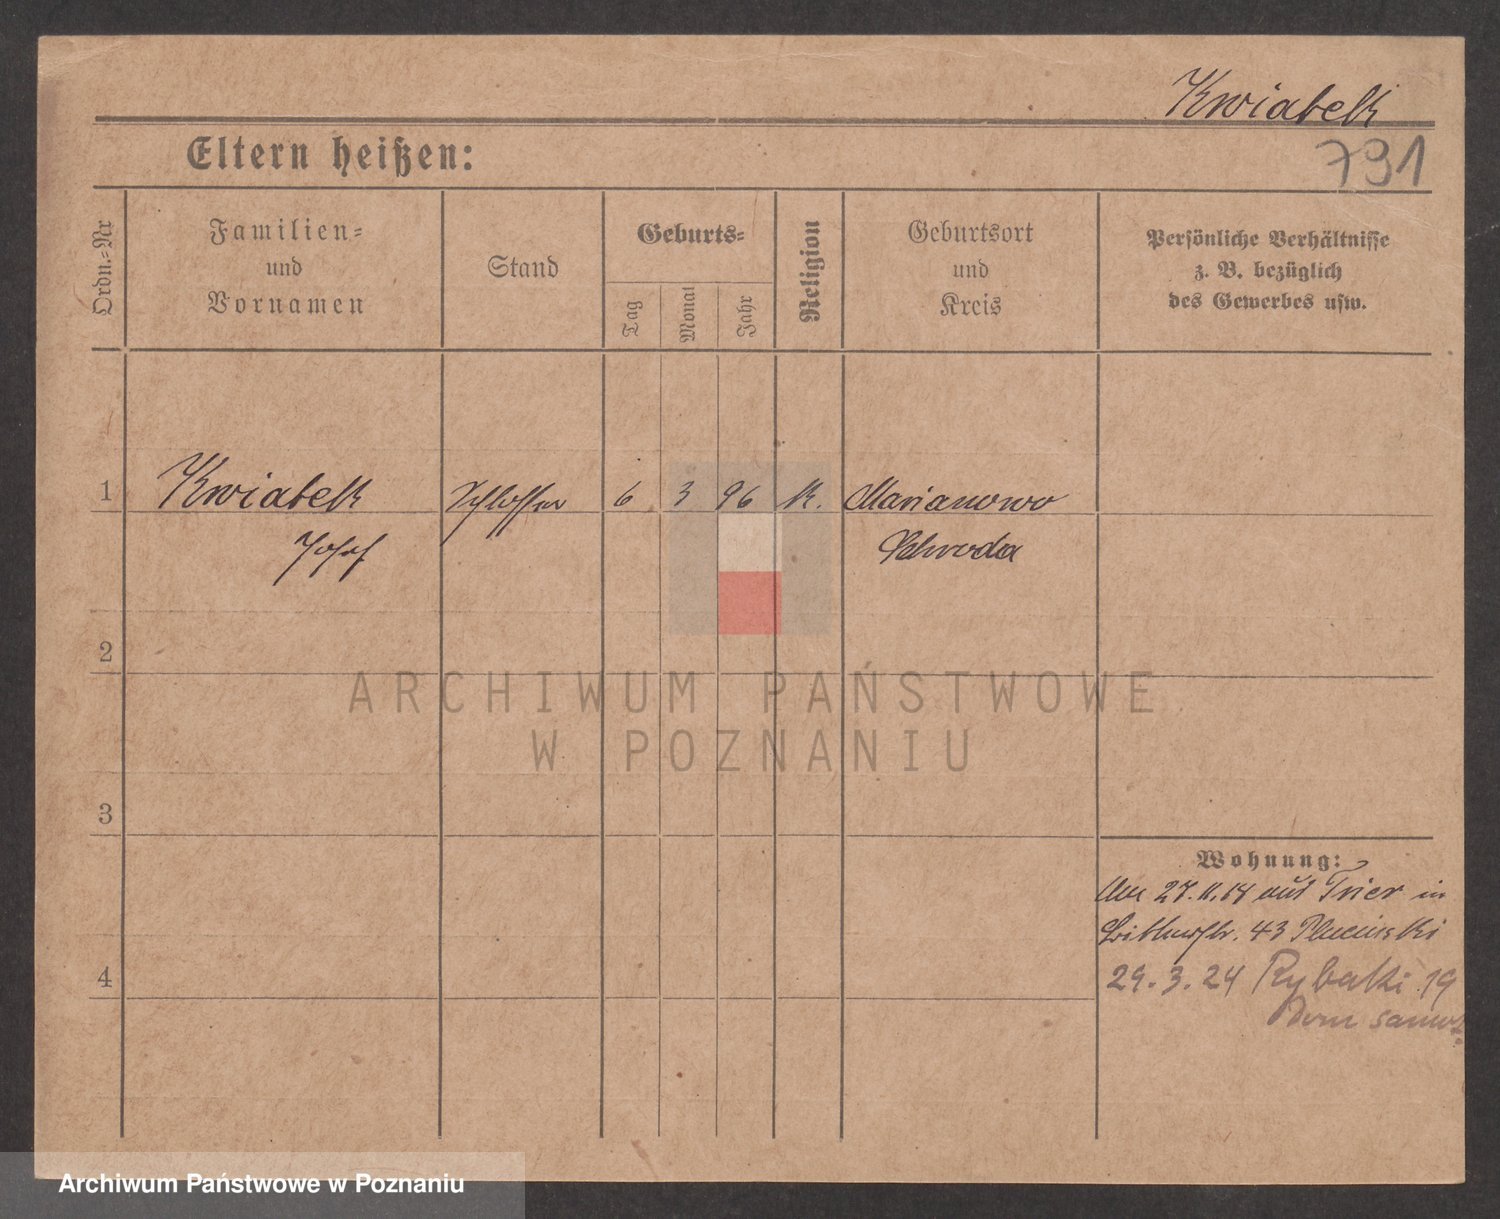 Kwiatek
Eltern heißen:
791
Ordn.-Nr
Familien-
und
Vornamen
Stand
Geburts-
Tag
Monat
Jahr
Religion
Geburtsort
und
Kreis
Persönliche Verhältnisse
z. B. bezüglich
des Gewerbes usw.
1 Kwiatek Schlosser 6 3 96 K. Marianowo
Josef Schroda
2
ARCHIWUM PAŃSTWOWE
W POZNANIU
3
Wohnung:
27. 11. aus Trier in
43 Plucinski
4
29.3.24 Rybaki 19
Dom
Archiwum Państwowe w Poznaniu